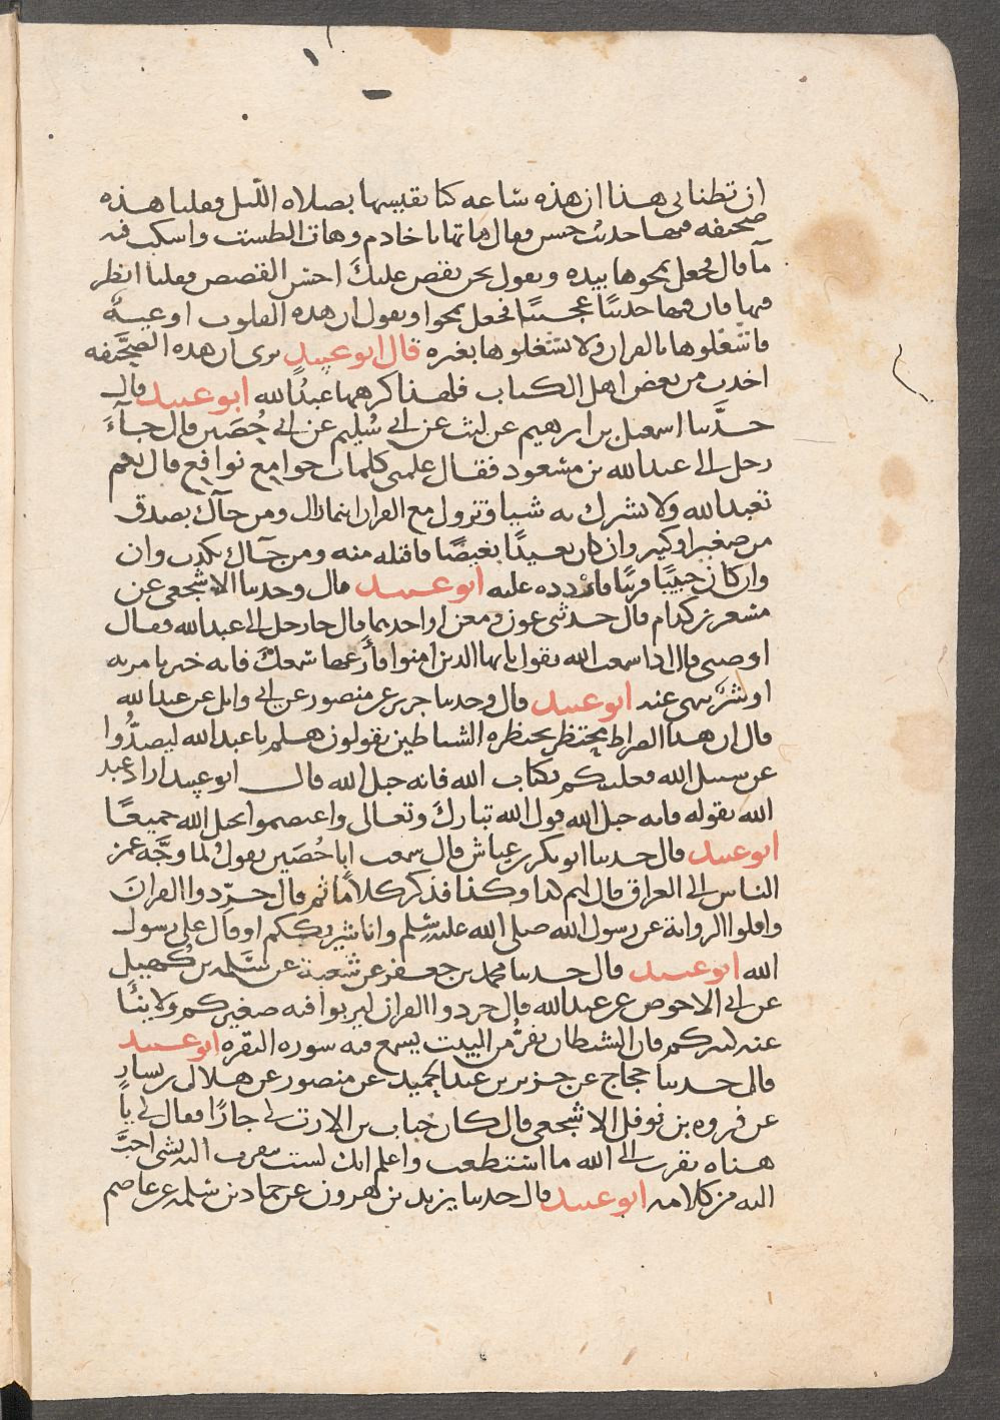 ان تطنا بى هذا ان هذه ساعه كنا نقيسها بصلاه الليل فقلنا هذه
صحيفه فيها حديث حسن فقال هاتها يا خادم وهات الطست واسكب فيه
مآ قال فجعل يمحوها بيده ويقول نحن نقص عليك احسن القصص فقلنا انظر
فيها فان فيها حديثا عجيبًا فجعل يمحوا ويقول ان هذه القلوب اوعيةٌ
فاشغلوها بالقران ولا تشغلوها بغيره قال ابو عبيد نرى ان هذه الصحيفه
اخذت من بعض اهل الكتاب فلهذا كرهها عبد الله ابو عبيد قال
حدَّثنا اسمعيل بن ابرهيم عن ليث عن ابى سُليم عن ابى حُصَين قال جآءَ
رجل الى عبد الله بن مسعود فقال علمنى كلمات جوامع نوافع قال نعم
تعبد الله ولا تشرك به شيا وتزول مع القران اينما زال ومن جآك بصدق
من صغير او كبير وان كان بعيدًا بغيضًا فاقبله منه ومن جآك بكذب وان
وان كان حبيبًا قريبًا فاردده عليه ابو عبيد قال وحدثنا الاشجعى عن
مسعر بن كدام قال حدثنى عون ومعن او احدهما قال جا رجل الى عبد الله فقال
اوصنى قال اذا سمعت الله يقول يايها الذين امنوا فأرعها سمعك فانه خير يامر به
او شرٌ ينهى عنه ابو عبيد قال وحدثنا جرير عن منصور عن ابى وايل عن عبد الله
قال ان هذا الصراط محتظر يحتظره الشياطين يقولون هلم يا عبد الله ليصدُّوا
عن سبيل الله فعليكم بكتاب الله فانه حبل الله قال ابو عبيد اراد عبد
الله بقوله فانه حبل الله قول الله تبارك وتعالى واعتصموا بحبل الله جميعًا
ابو عبيد قال حدثنا ابو بكر بن عياش قال سمعت ابا حُصَين يقول لما وجَّه عمر
الناس الى العراق قال لهم كذا وكذا فذكر كلامًا ثم قال جرّدوا القرانَ
واقلوا الرواية عن رسول الله صلى الله عليه وسلم وانا شريككم او قال على رسول
الله ابو عبيد قال حدثنا محمد بن جعفر عن شعبة عن سَلمه بن كُهيل
عن ابى الاحوص عن عبد الله قال جردوا القران ليربوا فيه صغيركم ولا ينئا
عنه كبيركم فان الشيطان يفرُّ من البيت يسمع فيه سوره البقره ابو عبيد
قال حدثنا حجاج عن جرير بن عبد الحميد عن منصور عن هلال بن يساف
عن فروه بن نوفل الاشجعى قال كان خباب بن الارت لى جارًا فقال لى ياً
هناه تقرب الى الله ما استطعت واعلم انك لست تتقرب اليه بشى احبَّ
اليه من كلامه ابو عبيد قال حدثنا يزيد بن هرون عن حماد بن سلمه عن عاصم